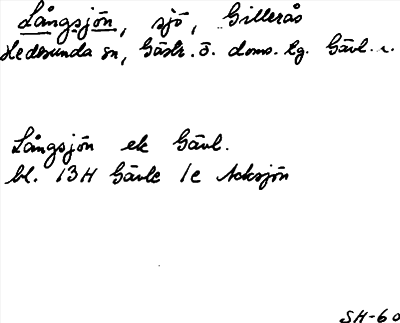 Långsjön, sjö, Gillerås
Hedesunda sn, Gästr. ö. doms. tg. Gävl. l.
Långsjön ek Gävl.
bl. 13H Gävle 1c Acksjön
SH-60